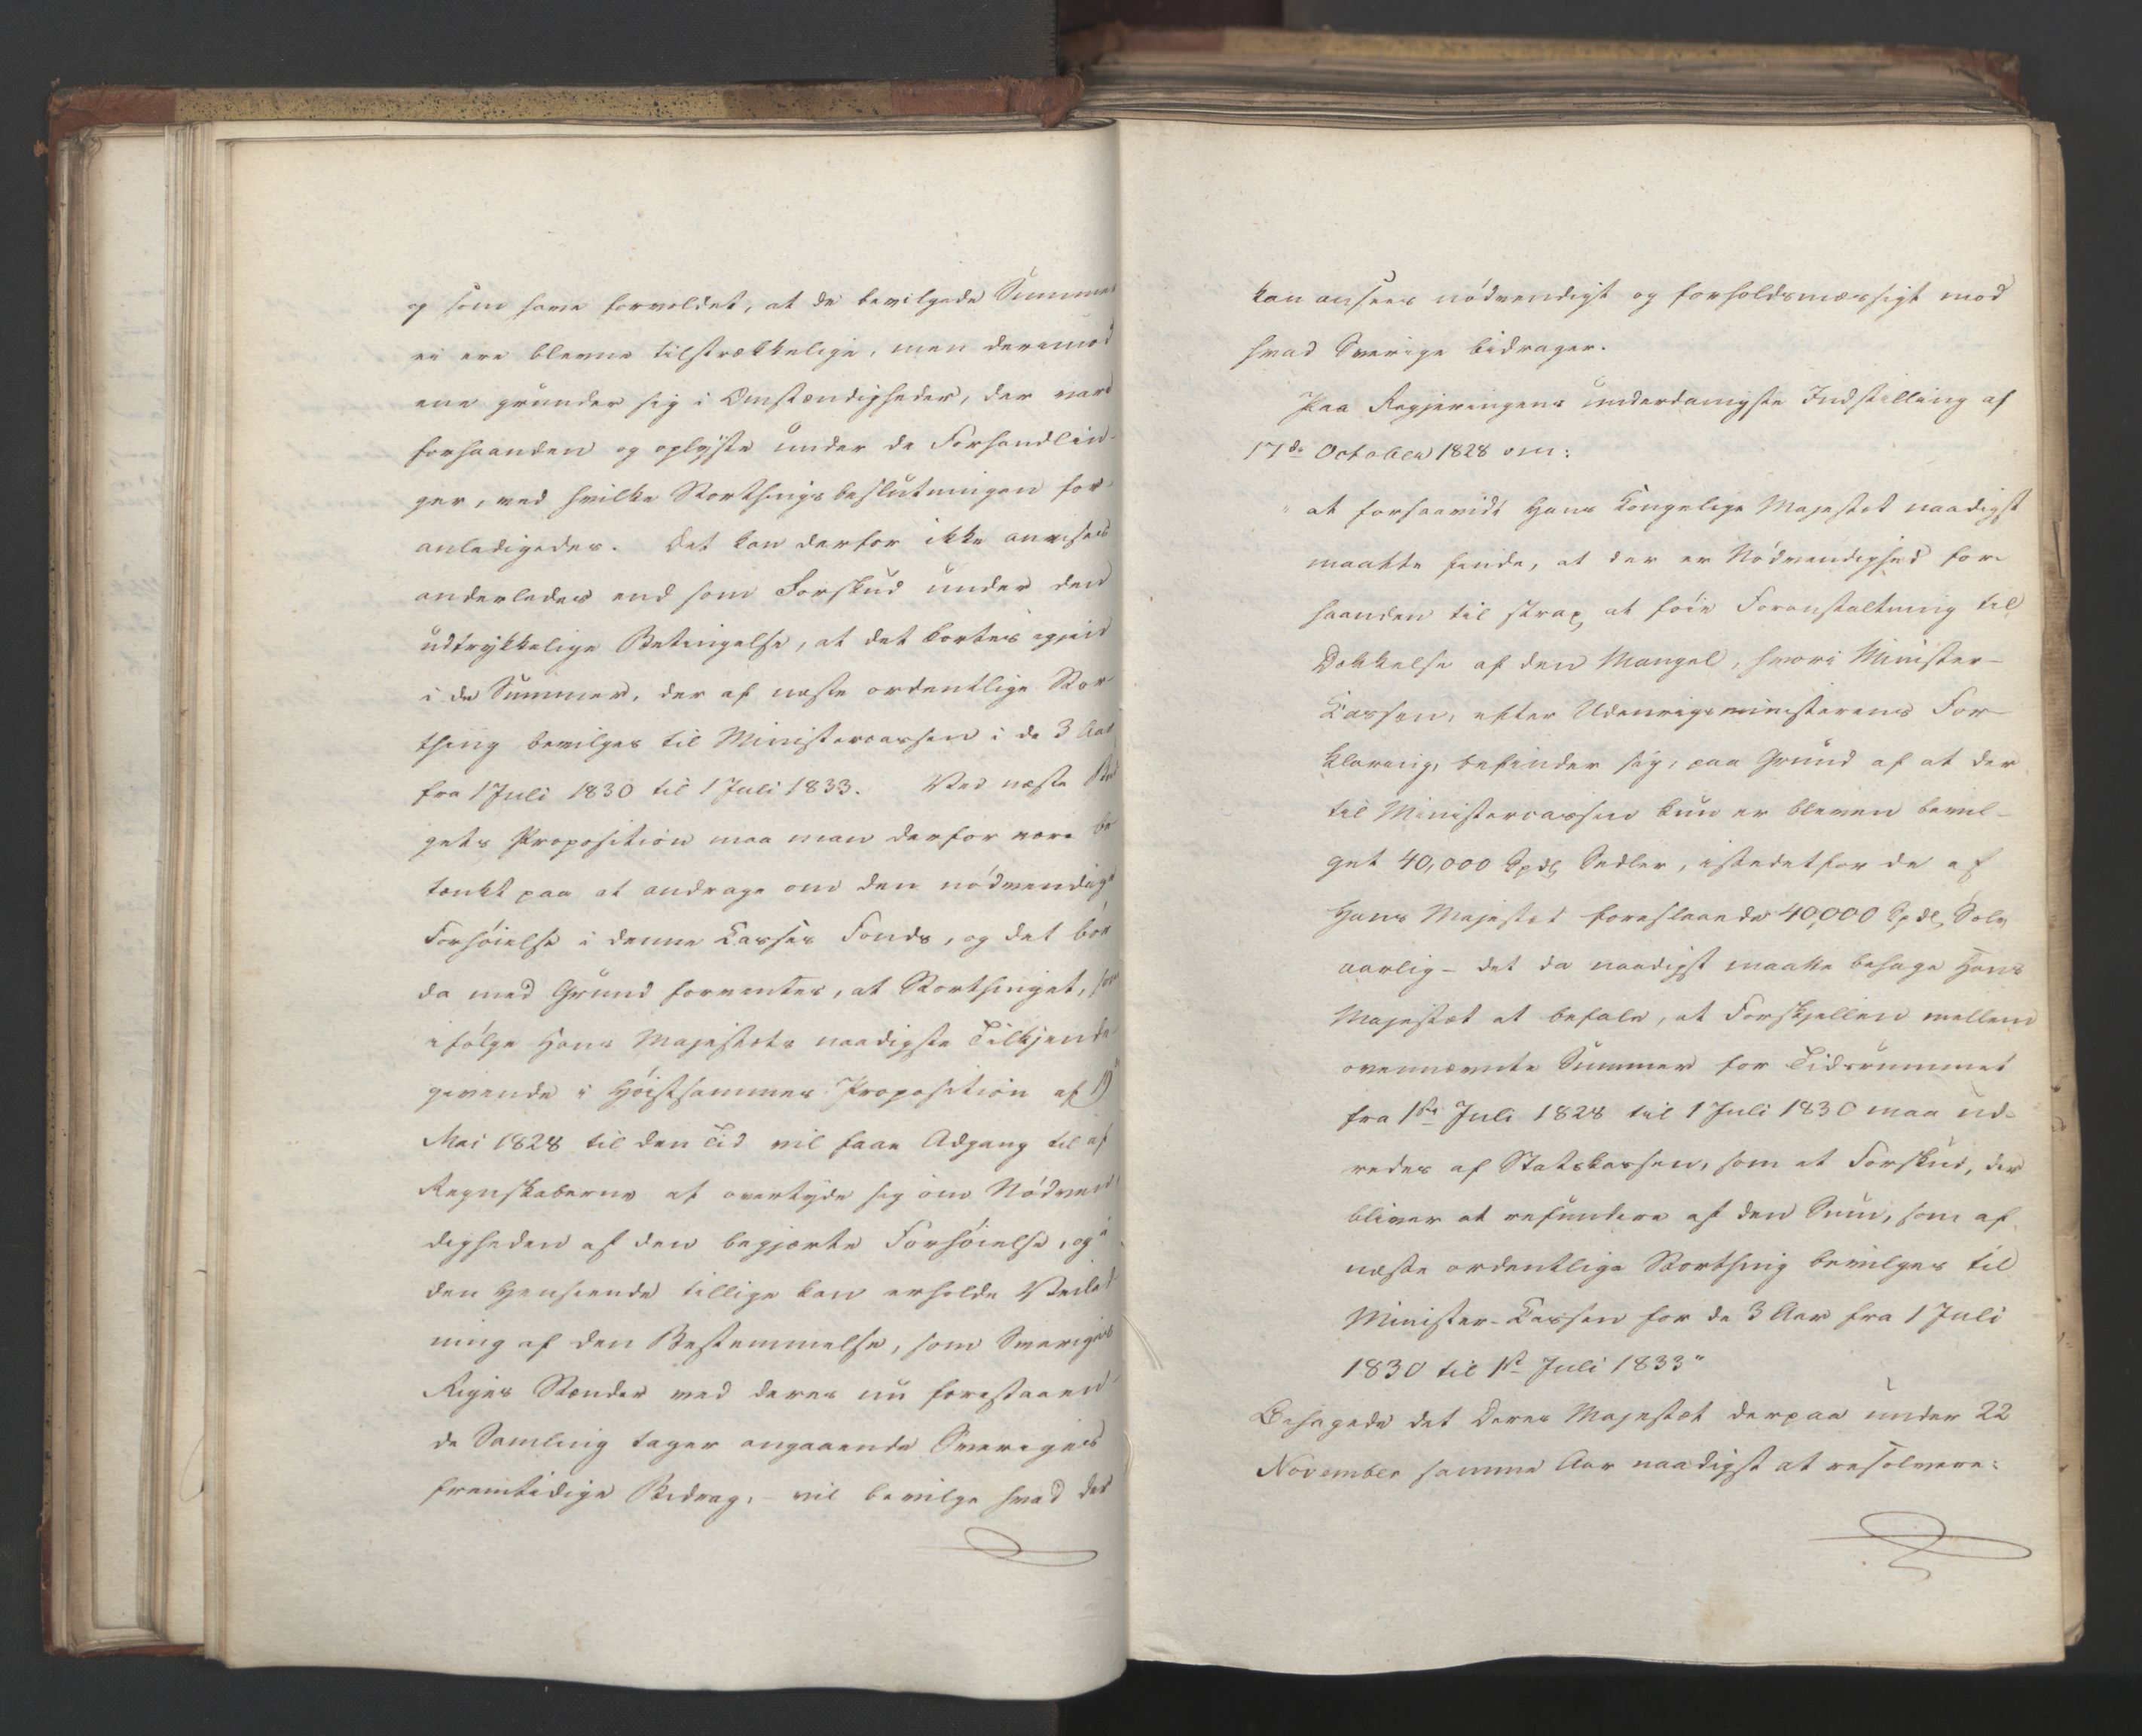 og som have forvoldet, at de bevilgede Summer
ei ere blevne tilstrækkelige, men derimod
ene grunder sig i Omstændigheder, der vare
forhaanden og oplyste under de Forhandlin-
ger, ved hvilke Storthingsbeslutningen for-
anledigedes. Det kan derfor ikke anvises
anderledes end som Forskud under den
udtrykkelige Betingelse, at det kortes igjen
i de Summer, der af næste ordentlige Stor-
thing bevilges til Ministercassen i de 3 Aar
fra 1 Juli 1830 til 1 Juli 1833. Ved næste Bud
gets Proposition maa man derfor være be
tænkt paa at andrage om den nødvendige
Forhøielse i denne Casses Fonds, og det bør
da med Grund forventes, at Storthinget, som
ifølge Hans Majestæts naadigste Tilkjende-
givende i Høistsammes Proposition af 19
Mai 1828 til den Tid vil faae Adgang til af
Regnskaberne at overtyde sig om Nødven
digheden af den begjærte Forhøielse, og i
den Henseende tillige kan erholde Veiled
ning af den Bestemmelse, som Sveriges
Riges Stænder ved deres nu forestaaen-
de Samling tager angaaende Sveriges
fremtidige Bidrag, - vil bevilge hvad der
kan ansees nödvendigt og forholdsmæssigt mod
hvad Sverige bidrager.
Paa Regjeringens underdanigste Indstilling af
17de October 1828 om:
" at forsaavidt Hans Kongelige Majestæt naadigst
maatte finde, at der er Nödvendighed for-
haanden til strax at föie Foranstaltning til
Dækkelse af den Mangel, hvori Minister-
Cassen, efter Udenrigsministerens For-
klaring, befinder sig, paa Grund af at der
til Ministercassen kun er bleven bevil-
get 40,000 Spdlr Sedler, istedetfor de af
Hans Majestæt foreslaaede 40,000 Spdlr Sölv
aarlig - det da naadigst maatte behage Hans
Majestæt at befale, at Forskjellen mellem
ovennævnte Summer for Tidsrummet
fra 1ste Juli 1828 til 1 Juli 1830 maa ud-
redes af Statskassen, som et Forskud, der
bliver at refundere af den Sum, som af
næste ordentlige Storthing bevilges til
Minister-Cassen for de 3 Aar fra 1 Juli
1830 til 1st Juli 1833"
Behagede det Deres Majestæt derpaa under 22
November samme Aar naadigst at resolvere: